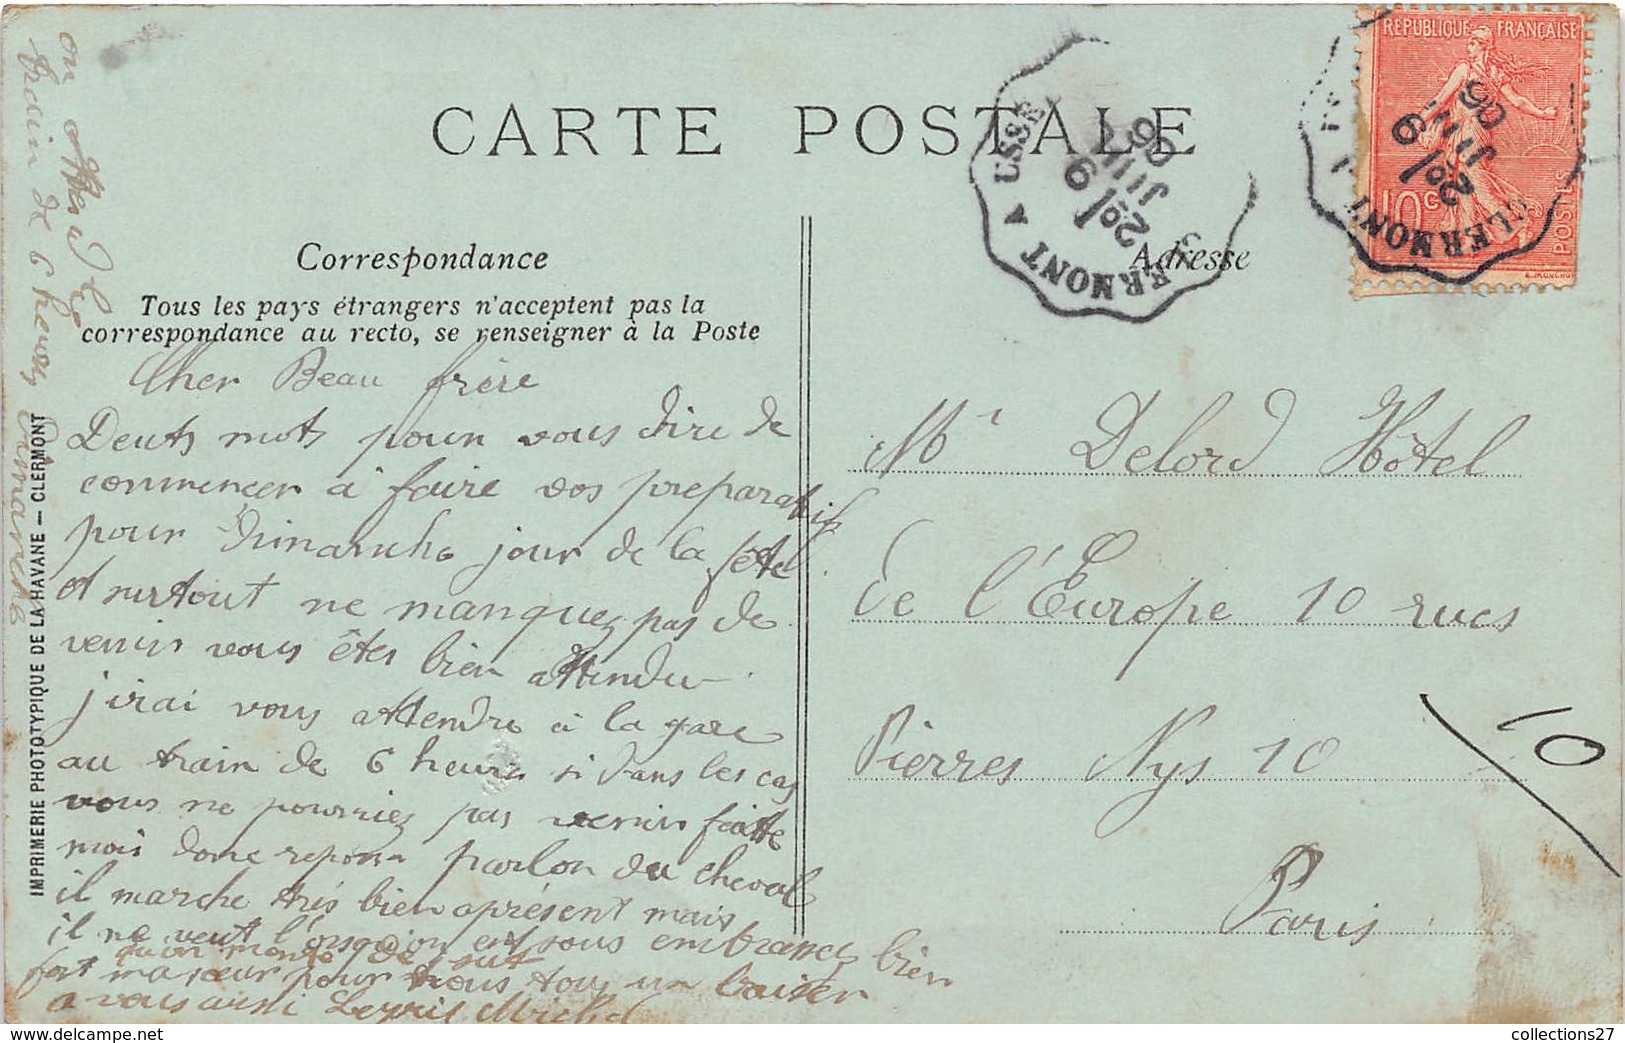 CARTE POSTALE
RÉPUBLIQUE FRANÇAISE
10 c
POSTES
CLERMONT A USSEL
2º/ 9
JUIL
06
CLERMONT A
2º/ 9
JUIL
06
Correspondance
Tous les pays étrangers n'acceptent pas la
correspondance au recto, se renseigner à la Poste
Adresse
Cher Beau frère
Deuts mots pour vous dire de
commencer à faire vos preparatifs
pour Dimanche jour de la fête
et surtout ne manquez pas de
venir vous êtes bien attendu
j'irai vous attendre à la gare
au train de 6 heures si dans les cas
vous ne pourriez pas venir faitte
mois donc repons parlon du cheval
il marche très bien aprésent mais
il ne veut l'orsqu'on est sous embrassez bien
qu'on monte dessut
fort ma sœur pour nous tous un baiser
a vous aussi Michel
on
train de 6 heures Dimanche
Mr Delord Hôtel
de l'Europe 10 rues
Pierres Nys 10
Paris
10
IMPRIMERIE PHOTOTYPIQUE DE LA HAVANE — CLERMONT
collections27
delcampe.net